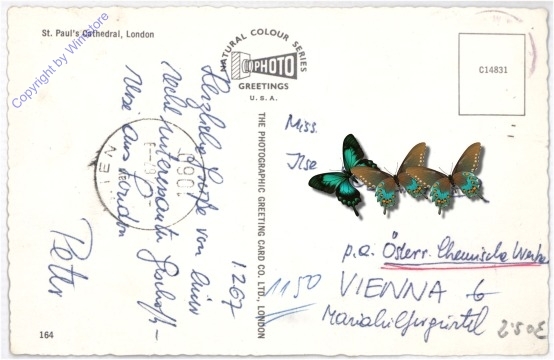 St. Paul's Cathedral, London
Copyright by Winstore
NATURAL COLOUR SERIES
PHOTO
GREETINGS
U.S.A.
C14831
THE PHOTOGRAPHIC GREETING CARD CO. LTD., LONDON
1267
Herzliche Grüße von einer
recht interessanten Geschäfts-
reise aus London
Peter
WIEN
1150
Miss.
Ilse
p.a. Österr. Chemische Werke
VIENNA 6
Mariahilfergürtel
164
2'50E